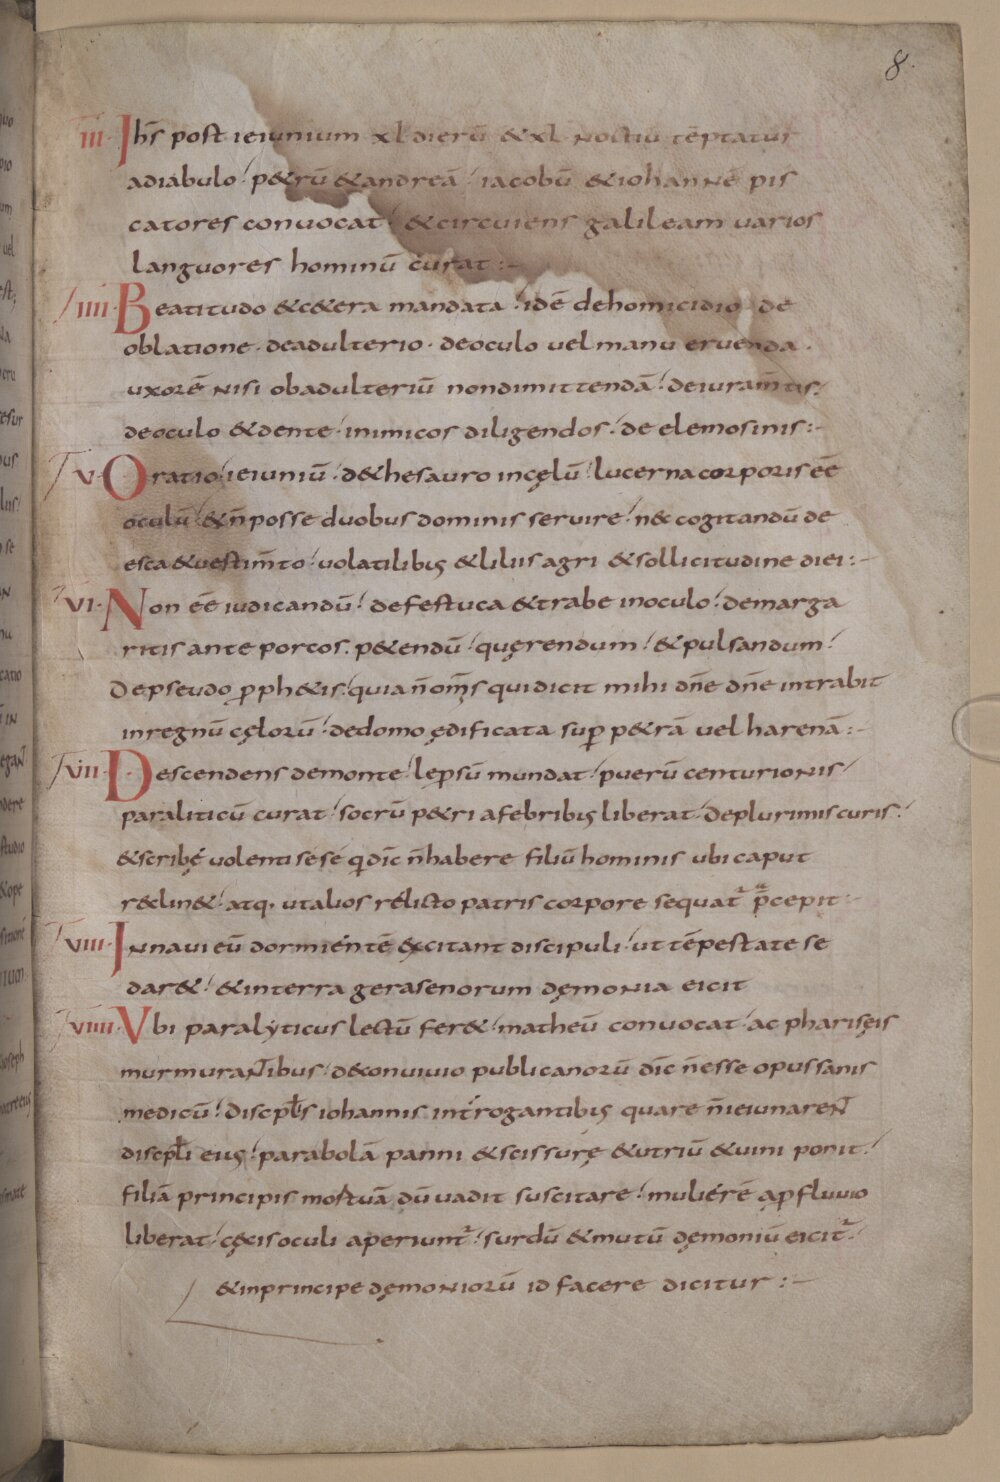 8.
III · Ihs̄ post ieiunium xl dierū & xl noctiū tēptatur
adiabulo p&rū & andreā iacobū & iohannē pis
catores convocat & circuiens galileam varios
languores hominū curat :-
IIII · Beatitudo & c&era mandata idē dehomicidio de
oblatione · deadulterio · deoculo vel manu eruenda ·
uxorē nisi obadulteriū nondimittendā deiuram̄tis
deoculo & dente inimicos diligendos de elemosinis :-
V · Oratio ieiuniū d&hesauro incęlū lucerna corporis eē
oculū & n̄ posse duobus dominis servire n& cogitandū de
esca & vestim̄to volatilibus & liliis agri & sollicitudine diei :-
VI · Non eē iudicandū defestuca & trabe inoculo demarga
ritis ante porcos · p&endū quęrendum & pulsandum
Depseudo pph&is quia n̄ om̄s quidicit mihi dn̄e dn̄e intrabit
inregnū cęlorū dedomo ędificata sup p&rā vel harenā :-
VII · Descendens demonte lepsū mundat puerū centurionis
paraliticū curat socrū p&ri afebribus liberat deplurimis curis
& scribę volenti sese q dic̄ n̄ habere filiū hominis ubi caput
reclin& atq. ut alios relicto patris corpore sequat p̄cepit :-
VIII · Innavi eū dormientē excitant discipuli ut tēpestate se
dar& & interra gerasenorum dęmonia eicit
VIIII · Ubi paralyticus lectū fer& matheū convocat ac phariseis
murmurantibus d&convivio publicanorū dic̄ n̄ esse opus sanis
medicū discpłs iohannis introgantibus quare n̄ ieiunarent
discpłi eius parabolā panni & scissurę & utriū & vini ponit
filiā principis mortuā dū vadit suscitare mulierē a pfluvio
liberat cęcis oculi aperiunt surdū & mutū dęmoniū eicit
& inprincipe dęmoniorū id facere dicitur :-